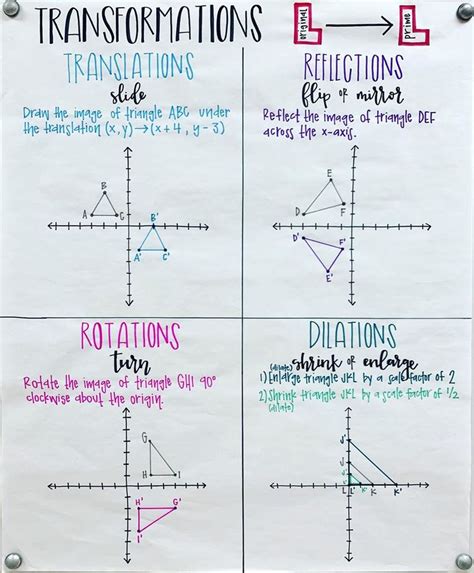 TRANSFORMATIONS
original
prime
TRANSLATIONS
slide
Draw the image of triangle ABC under
the translation (x,y)→(x+4, y-3)
B
A
C
B'
A'
C'
REFLECTIONS
flip or mirror
Reflect the image of triangle DEF
across the x-axis.
E
D
F
D'
F'
E'
ROTATIONS
turn
Rotate the image of triangle GHI 90°
clockwise about the origin.
G
H
I
H'
G'
I'
DILATIONS
shrink or enlarge
(dilate)
1) Enlarge triangle JKL by a scale factor of 2
2) Shrink triangle JKL by a scale factor of 1/2
(dilate)
J'
J
L
L'
K'
K
K'